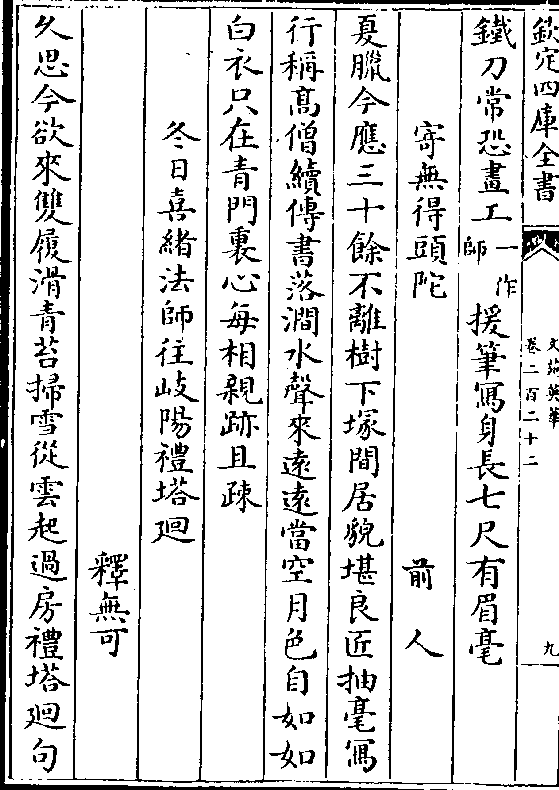 欽定四庫全書
文苑英華
卷二百二十二
九
鐵刀常恐畫工一作師援筆寫身長七尺有眉毫
寄無得頭陀
前人
夏臘今應三十餘不離樹下塚間居貌堪良匠抽毫寫
行稱髙僧續傳書落澗水聲來遠遠當空月色自如如
白衣只在青門裏心每相親跡且疎
冬日喜緒法師往岐陽禮塔廻
釋無可
久思今欲來雙履滑青苔掃雪從雲起過房禮塔廻句